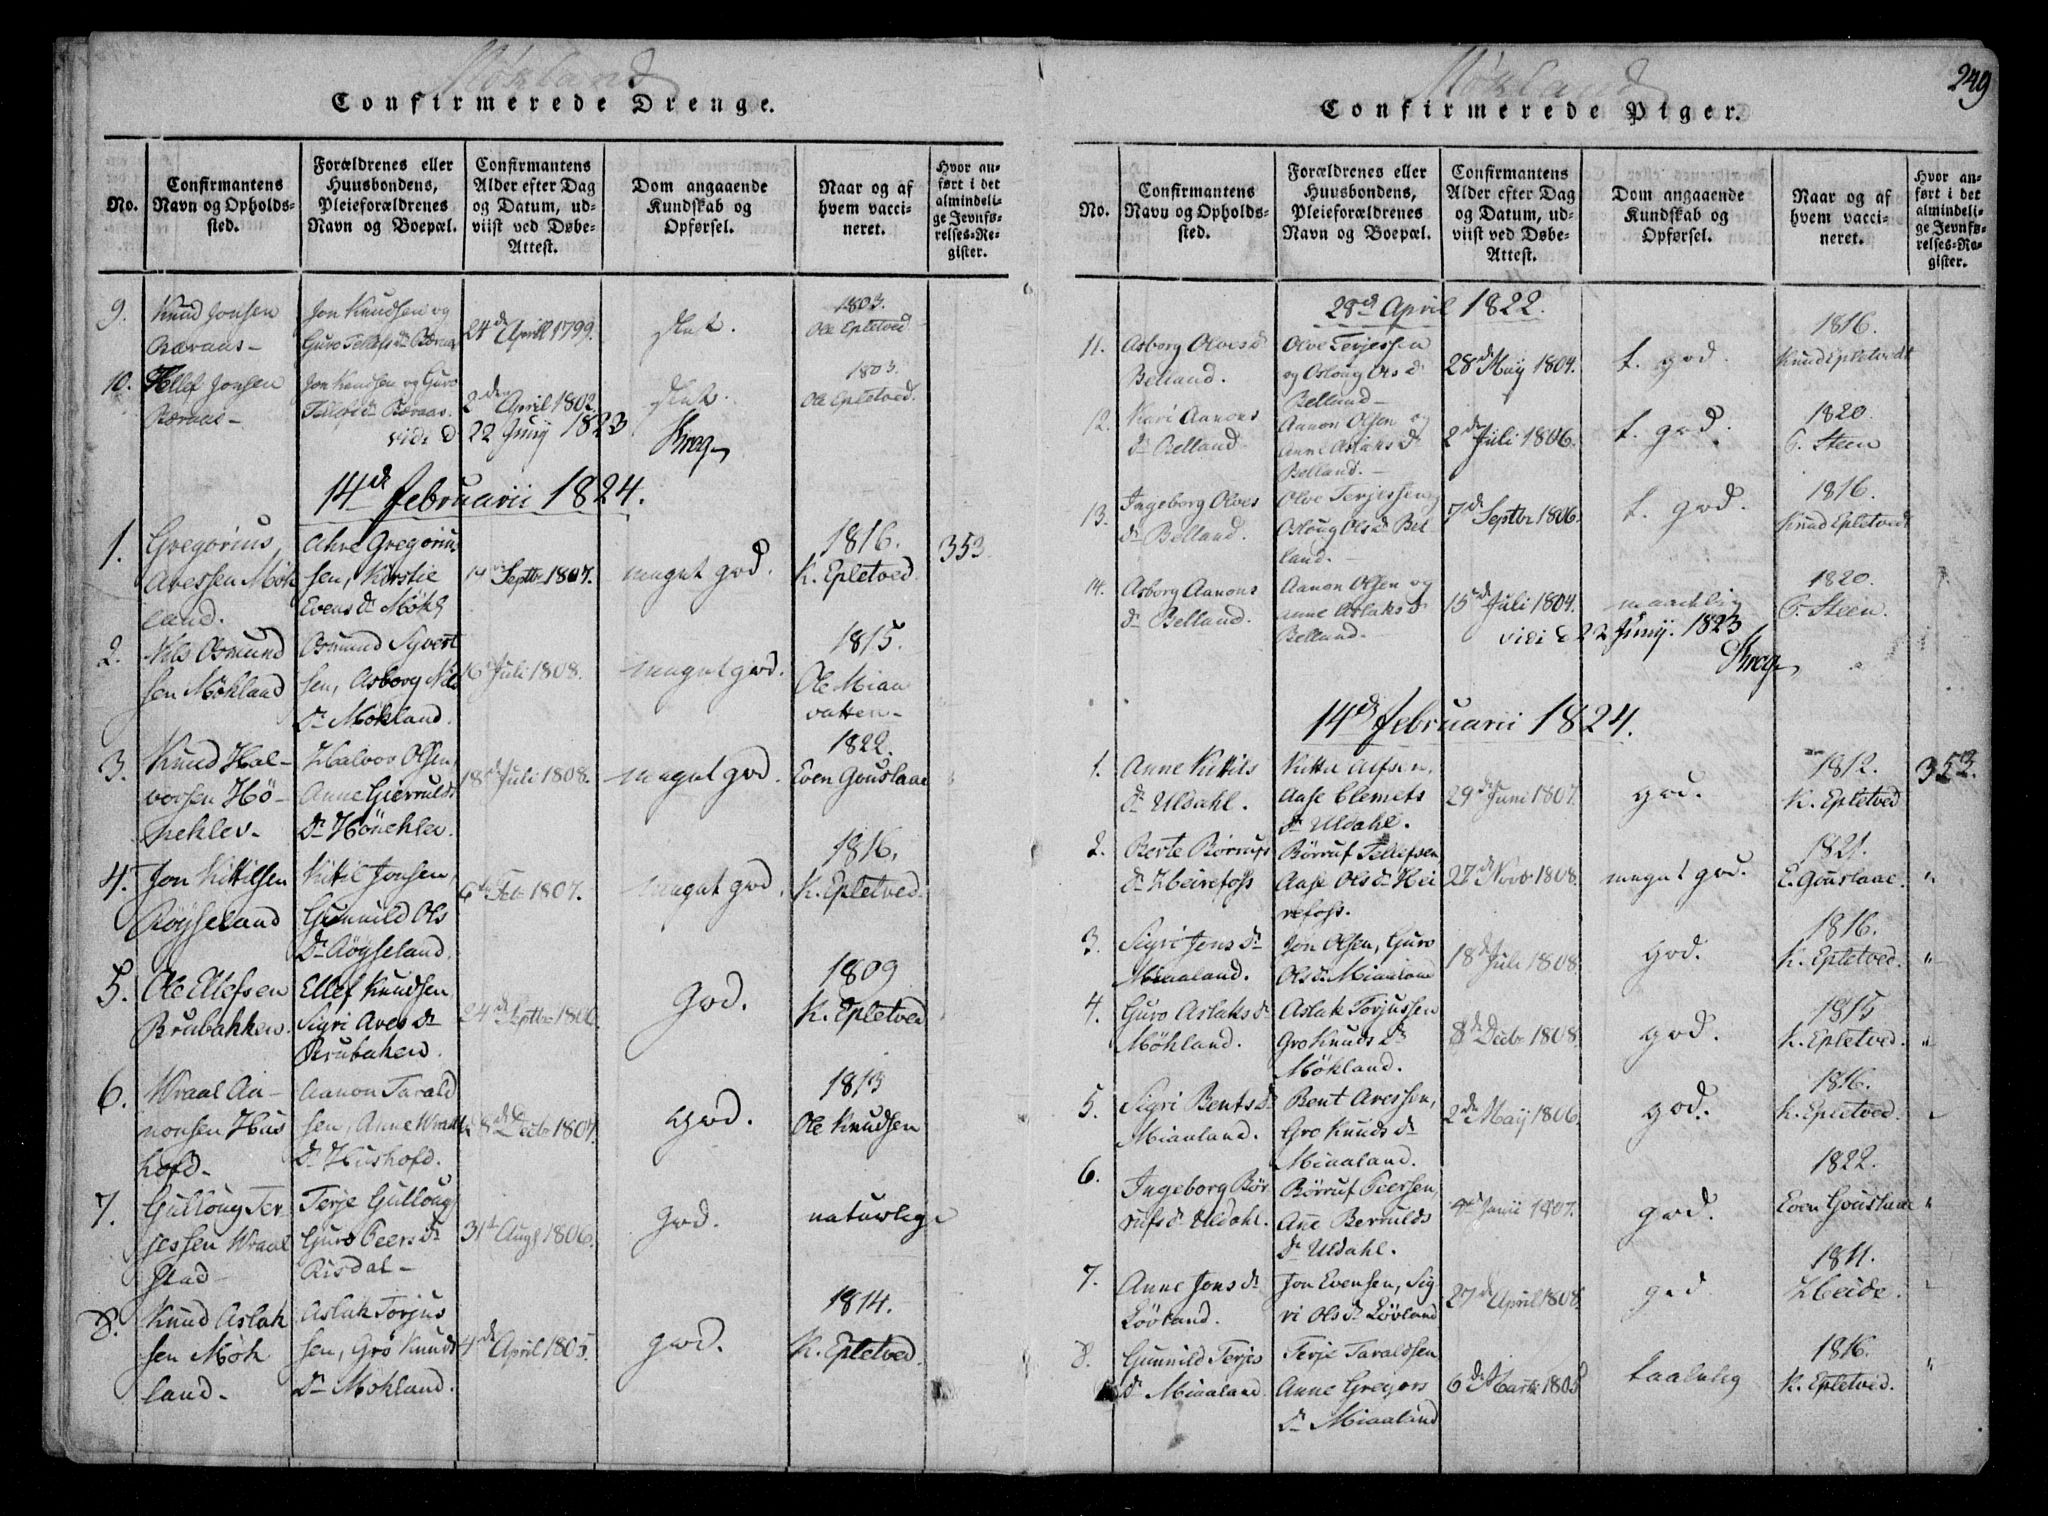 Mökland
Confirmerede Drenge.
No.
Confirmantens
Navn og Opholds-
sted.
Forældrenes eller
Huusbondens,
Pleieforældrenes
Navn og Boepæl.
Confirmantens
Alder efter Dag
og Datum, ud-
viist ved Døbe-
Attest.
Dom angaaende
Kundskab og
Opførsel.
Naar og af
hvem vacci-
neret.
Hvor an-
ført i det
almindeli-
ge Jevnfø-
relses-Re-
gister.
9.
Knud Jonsen
Jon Knudsen og
24de April 1799.
slet.
1803.
Ole Epletved
10.
Jonsen
Jon Knudsen og Guro
2den April 1802
slet.
1803.
Ole Epletved.
vidi d 22 Junij 1823
14de Februarii 1824.
1.
Gregorius
Avessen Mök
land.
Ahve Gregorius
sen, Kirstie
Evens Dr Mökl
Septbr 1807.
maget god.
1816.
K. Epletved.
353
2.
Nils Osmund
sen Mökland
Osmund Sjvert
sen, Asborg Nils
Dr Mökland.
16 Juli 1808.
maget god.
1815.
Ole Mian
vatten-
3.
Knud Hal-
vorsen Hö-
neklev-
Halvor Olsen,
Anne Gierrulds
Dr Hönehlev.
18de Juli 1808.
maget god.
1822.
Even Gouslaae
4.
Jon Kittilsen
Röyseland
Kitil Jonsen,
Gunnild Ols
Dr Röyseland.
6te Feb 1807.
maget god.
1816.
K. Epletved.
5.
Ole Ellefsen
Brubakken.
Ellef Knudsen
Sigri Aves Dr
Brubaken.
24de Septbr 1806
God.
1809
K. Epletved
6.
Wraal Aa-
nonsen Hus
hofd-
Aanon Tarald
sen, Anne Wraals
Dr Hushofd.
8de Decbr 1804.
God.
1813
Ole Knudsen
7.
Gulloug Ter
jessen Wraal
stad-
Terje Gulloug
Guro Peers Dr
Risdal-
31te Augs 1806.
God.
naturlige
8.
Knud Aslak
sen Mök
land-
Aslak Torjus
sen, Gro Knuds
Dr Mökland.
4de April 1805.
god.
1814.
K. Epletved.
Mökland
249
Confirmerede Piger.
No.
Confirmantens
Navn og Opholds-
sted.
Forældrenes eller
Huusbondens,
Pleieforældrenes
Navn og Boepæl.
Confirmantens
Alder efter Dag
og Datum, ud-
viist ved Døbe-
Attest.
Dom angaaende
Kundskab og
Opførsel.
Naar og af
hvem vacci-
neret.
Hvor an-
ført i det
almindeli-
ge Jevnfø-
relses-Re-
gister.
28de April 1822.
11.
Asborg Olves Dr
Belland.
Olve Terjessen
og Osloug Ols Dr
Belland-
28de May 1804.
t. god.
1816.
Knud Epletvedt
12.
Kari Aanons
Dr Belland-
Aanon Olsen og
Anne Aslaks Dr
Belland.-
2de Juli 1806.
t. god.
1820.
Steen
13.
Ingeborg Olves
Dr Belland.
Olve Terjessen og
Osloug Ols Dr Bel
land.-
7de Septbr 1806.
t. god.
1816.
Knud Epletvedt
14.
Asborg Aanons
Dr Belland.
Aanon Olsen og
Anne Aslaks Dr
Belland.-
15de Juli 1804.
maadelig
1820.
Steen.
vidi d 22 Junij. 1823
14de Februarii 1824.
1.
Anne Kittils
Dr Uldahl.
Kittil Alfsen,
Aase Clemets
Dr Uldahl.
29de Juni 1807.
god.
1812.
K. Epletved
353.
2.
Berte Börrufs
Dr Heirefoss
Börruf Tellefsen
Aase Ols Dr Hei
refoss.
27de Novb 1808.
maget god.
1821.
E. Gouslaae.
"
3.
Sigri Jons Dr
Miaaland.
Jon Olsen, Guro
Ols Dr Miaaland
18de Juli 1808
God.
1816.
K. Epletved.
"
4.
Guro Aslaks Dr
Mökland.
Aslak Torjussen
Gro Knuds Dr
Mökland.
8de Decbr 1808.
god.
1815
K. Epletved.
"
5.
Sigri Bents Dr
Miaaland.
Bent Avessen,
Gro Knuds Dr
Miaaland.
2de May 1806.
god.
1816.
K. Epletved.
"
6.
Ingeborg Bör
rufs Dr Uldahl.
Börruf Peersen,
Ane Berrulds
Dr Uldahl.
1807.
god.
1822.
Even Gouslaae
"
7.
Anne Jons Dr
Lövland.
Jon Evensen, Sig
ri Ols Dr Lövland
27de April 1808.
god
1811.
Heide.
"
8.
Gunnild Terjes
Dr Miaaland.
Terje Taraldsen
Anne Greijers
Dr Miaaland
6de Marts 1805
taalelig
1816.
K. Epletved.
"